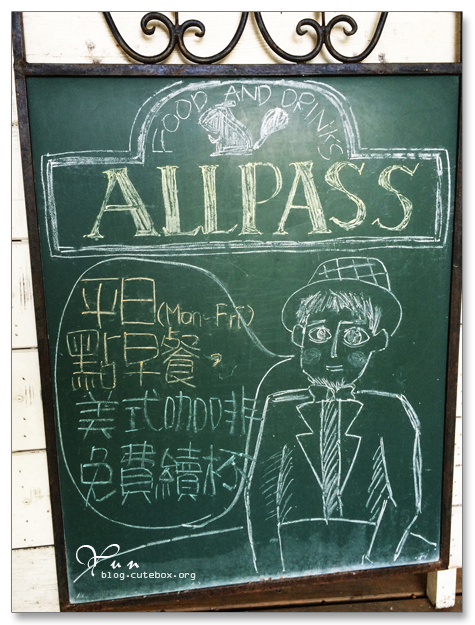 FOOD AND DRINKS
ALLPASS
平日(Mon-Fri)
點早餐,
美式咖啡
免費續杯
Yun
blog-cutebox.org